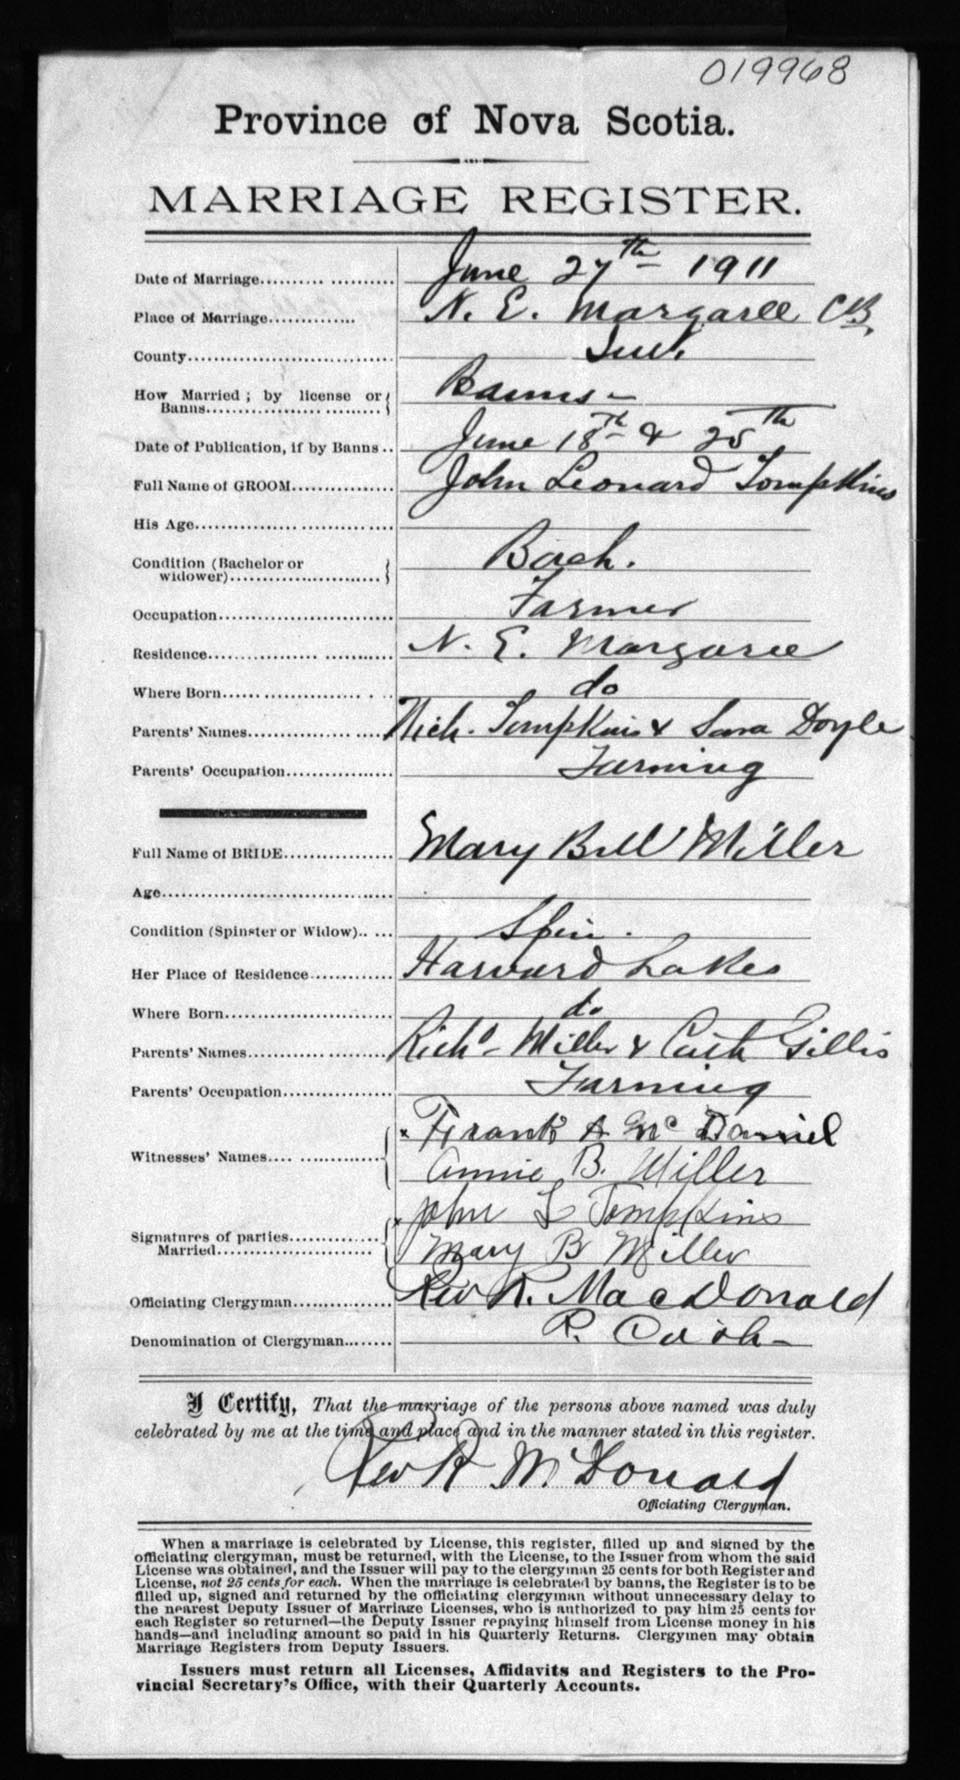 019968
Province of Nova Scotia.
MARRIAGE REGISTER.
Date of Marriage.......... .......... June 27th 1911
Place of Marriage............. N. E. Margaree CB,
County............................... Inv.
How Married ; by license or Banns.................... ......... Banns –
Date of Publication, if by Banns .. June 18th & 25th
Full Name of GROOM............... John Leonard Tompkins
His Age.................. ......... ....
Condition (Bachelor or widower)....................... Bach.
Occupation.......................... Farmer
Residence................ ........... N. E. Margaree
Where Born...... .................. . . do
Parents' Names............... .... Nich. Tompkins & Sara Doyle
Parents' Occupation................ Farming
Full Name of BRIDE................ Mary Bell Miller
Age...................................
Condition (Spinster or Widow).. ... Spin.
Her Place of Residence............ Harvard Lakes
Where Born......................... do
Parents' Names............. ........ Richd – Miller & Cath Gillis
Parents' Occupation................ Farming
x Frank A McDaniel
Witnesses' Names.... ............... Annie B. Miller
x John L Tompkins
Signatures of parties.............
Married....................... Mary B Miller
Officiating Clergyman............... Rev R. MacDonald
Denomination of Clergyman....... R. Cath –
I Certify, That the marriage of the persons above named was duly
celebrated by me at the time and place and in the manner stated in this register.
Rev R McDonald
Officiating Clergyman.
When a marriage is celebrated by License, this register, filled up and signed by the
officiating clergyman, must be returned, with the License, to the Issuer from whom the said
License was obtained, and the Issuer will pay to the clergyman 25 cents for both Register and
License, not 25 cents for each. When the marriage is celebrated by banns, the Register is to be
filled up, signed and returned by the officiating clergyman without unnecessary delay to
the nearest Deputy Issuer of Marriage Licenses, who is authorized to pay him 25 cents for
each Register so returned—the Deputy Issuer repaying himself from License money in his
hands—and including amount so paid in his Quarterly Returns. Clergymen may obtain
Marriage Registers from Deputy Issuers.
Issuers must return all Licenses, Affidavits and Registers to the Pro-
vincial Secretary's Office, with their Quarterly Accounts.